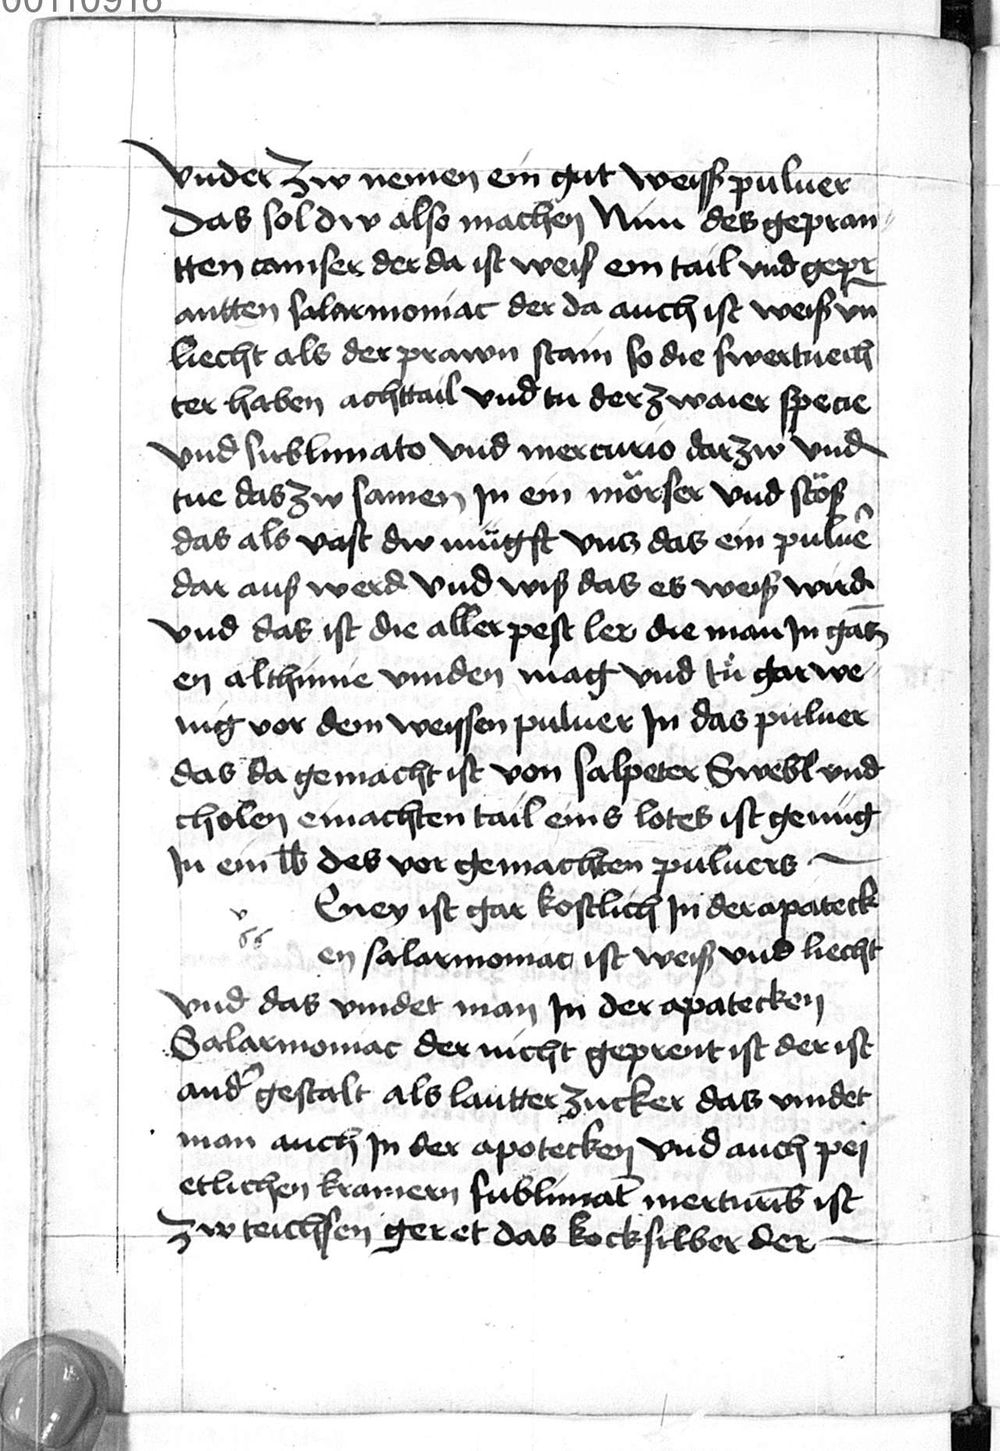 00110916
vnder zw nemen ein gut weiss puluer
Das sol dw also machen Nim des gepran
tten camfer der da ist weiß ein tail vnd gepr
antten salarmoniac der da auch ist weiß vn̄
liecht als der prawn stain so die swertuech
ter haben achttail vnd tu der zwaier specie
vnd sublimato vnd mercurio darzw vnd
tue das zw samen Jn ein mörser vnd stöß
das als vast dw mügst vnz das ein puluer
dar auß werd vnd wiß das es weiß wird
vnd das ist die aller pest ler die man Jn gātz
en alchimie vinden mag vnd tü gar we
nig vor dem weissen puluer Jn das puluer
das da gemacht ist von salpeter Swebl vnd
cholen ein achten tail eins lotes ist genüg
Jn ein lb des vor gemachten puluers
Eney ist gar kostlich Jn der apateck
en salarmoniac ist weiß vnd liecht
vnd das vindet man Jn der apatecken
Salarmoniac der nicht geprent ist der ist
and͛ gestalt als lautter zucker das vindet
man auch Jn der apotecken vnd auch pej
etlichen kramern sublimat mercurius ist
zw teichsen geret das kocksilber der